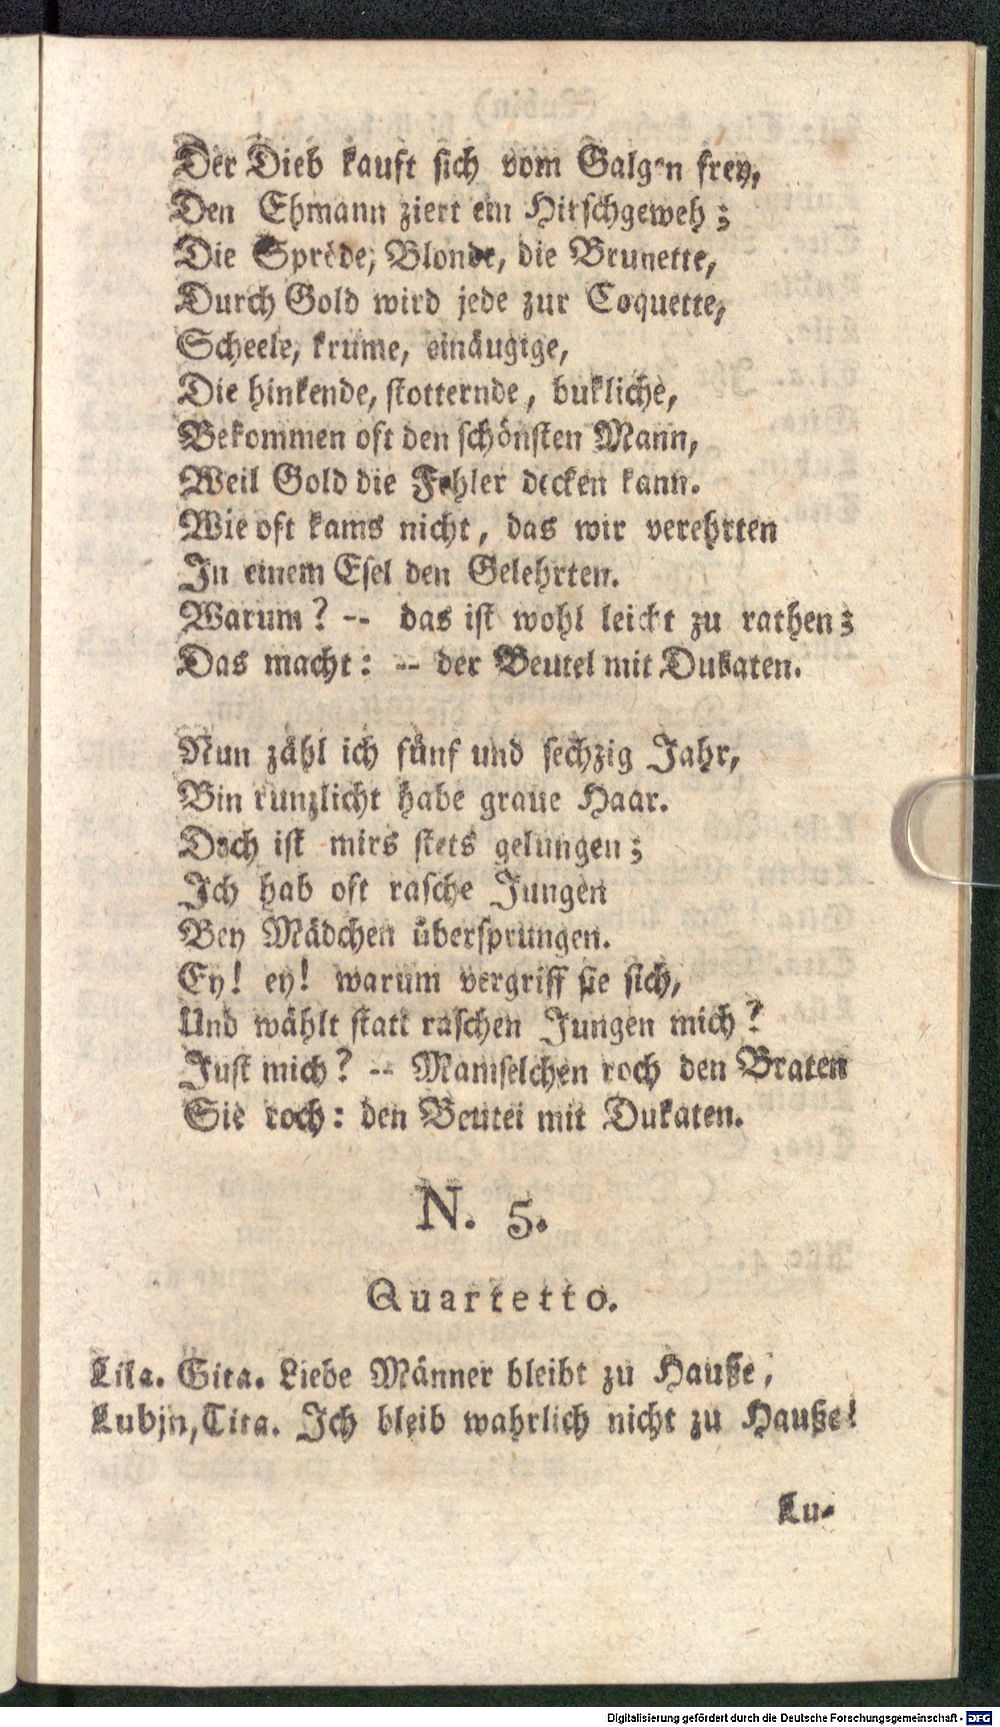 Der Dieb kauft sich vom Galgen frey,
Den Ehmann ziert ein Hirschgeweh;
Die Spröde, Blonde, die Brunette,
Durch Gold wird jede zur Coquette,
Scheele, krume, einäugige,
Die hinkende, stotternde, bukliche,
Bekommen oft den schönsten Mann,
Weil Gold die Fehler decken kann.
Wie oft kams nicht, das wir verehrten
In einem Esel den Gelehrten.
Warum? -- das ist wohl leicht zu rathen;
Das macht: -- der Beutel mit Dukaten.
Nun zähl ich fünf und sechzig Jahr,
Bin runzlicht habe graue Haar.
Doch ist mirs stets gelungen;
Ich hab oft rasche Jungen
Bey Mädchen übersprungen.
Ey! ey! warum vergriff sie sich,
Und wählt statt raschen Jungen mich?
Just mich? -- Mamselchen roch den Braten
Sie roch: den Beutel mit Dukaten.
N. 5.
Quartetto.
Lila. Gita. Liebe Männer bleibt zu Hauße,
Lubjn, Tita. Ich bleib wahrlich nicht zu Hauße!
Lu-
Digitalisierung gefördert durch die Deutsche Forschungsgemeinschaft - DFG